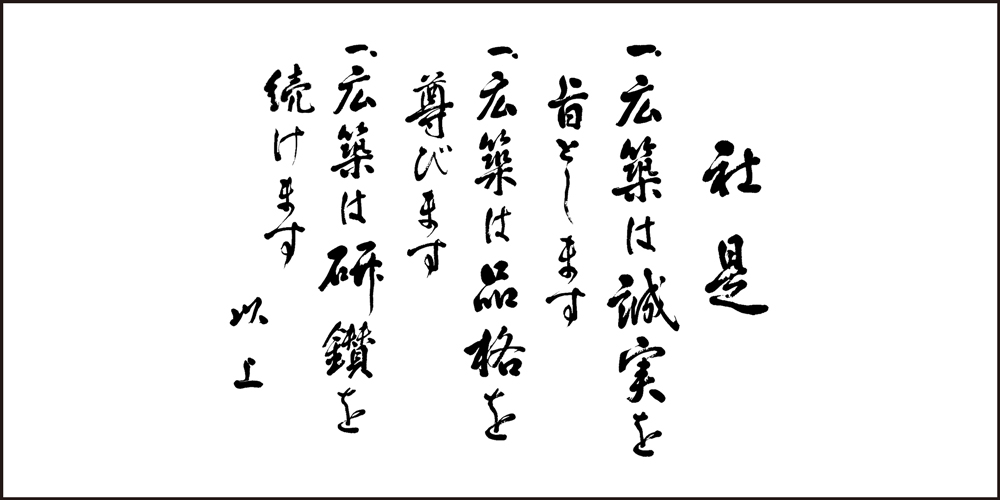 社是
一、広築は誠実を
旨とします
一、広築は品格を
尊びます
一、広築は研鑽を
続けます
以上